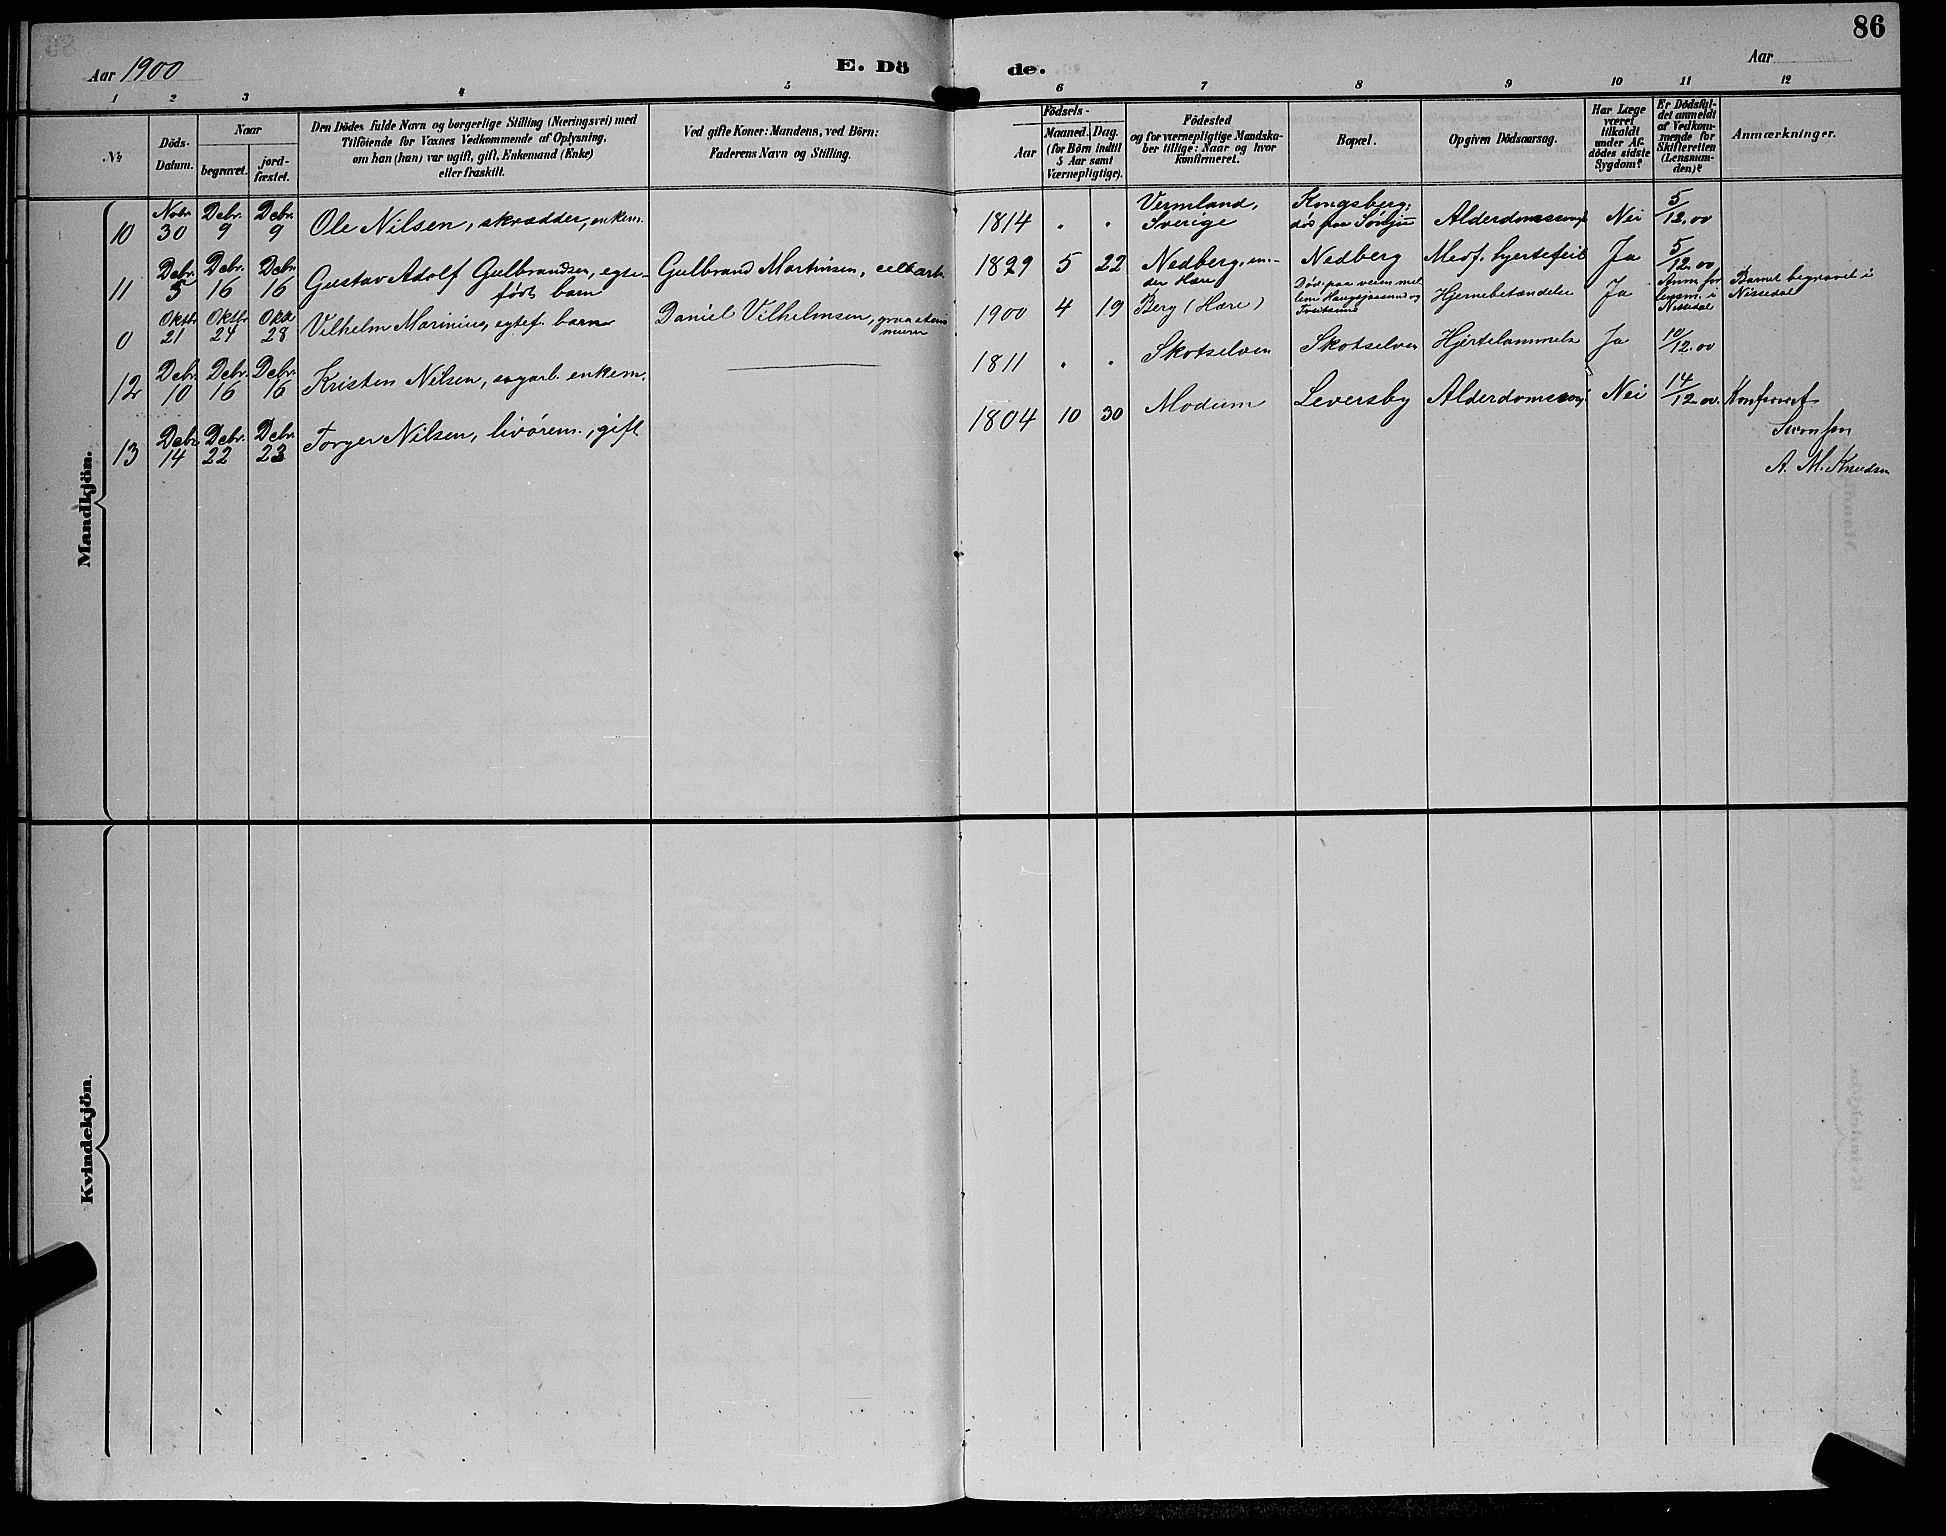 86
Aar 1900
E. Dö
de.
Aar
1 2 3 4 5 6 7 8 9 10 11 12
№
Döds-
Datum.
Naar
begravet.
jord-
fæstet.
Den Dödes fulde Navn og borgerlige Stilling (Næringsvei) med
Tilföiende for Voxnes Vedkommende af Oplysning,
om han (hun) var ugift, gift, Enkemand (Enke)
eller fraskilt.
Ved gifte Koner: Mandens, ved Börn:
Faderens Navn og Stilling.
Födsels-
Aar
Maaned. Dag.
(for Börn indtil
5 Aar samt
Værnepligtige).
Födested
og for værnepligtige Mandska-
ber tillige: Naar og hvor
konfirmeret.
Bopæl.
Opgiven Dödsaarsag.
Har Læge
været
tilkaldt
under Af-
dödes sidste
Sygdom?
Er Dödsfal-
det anmeldt
af Vedkom-
mende for
Skifteretten
(Lensman-
den)?
Anmærkninger.
Mandkjön.
10 Novbr. 30 Debr. 9 Debr. 9 Ole Nilsen, skrædder, enkem. 1814 " " Vermland, Sverige Kongsberg; død paa Alderdomssvag. Nei 5/12.00
11 Debr. 5 Debr. 16 Debr. 16 Gustav Adolf Gulbrandsen, egte-
født barn Gulbrand Martinsen, cellarb. 1899 5 22 Nedberg, un-
der Hære Nedberg Medf. hjertefeil Ja 5/12.00
0 Oktbr. 21 Oktbr. 24 Okt. 28 Vilhelm Marinius, egtef. barn Daniel Vilhelmsen, graastens
murer 1900 4 19 Berg (Hære) Døde paa veien mel
lem Haugsjaasund og
Tveitsund Hjernebetændelse Ja Anm. for
lensm. i
Nissedal Barnet begravet i
Nissedal
12 Debr. 10 Debr. 16 Debr. 16 Kristen Nilsen, sagarb. enkem. 1811 " " Skotselven Skotselven Hjertelammelse Ja 10/12.00
13 Debr. 14 Debr. 22 Debr. 23 Torger Nilsen, livørem., gift 1804 10 30 Modum Leversby Alderdomssvag. Nei 14/12.00. Konfereret
A. M. Knudsen
Kvindekjön.